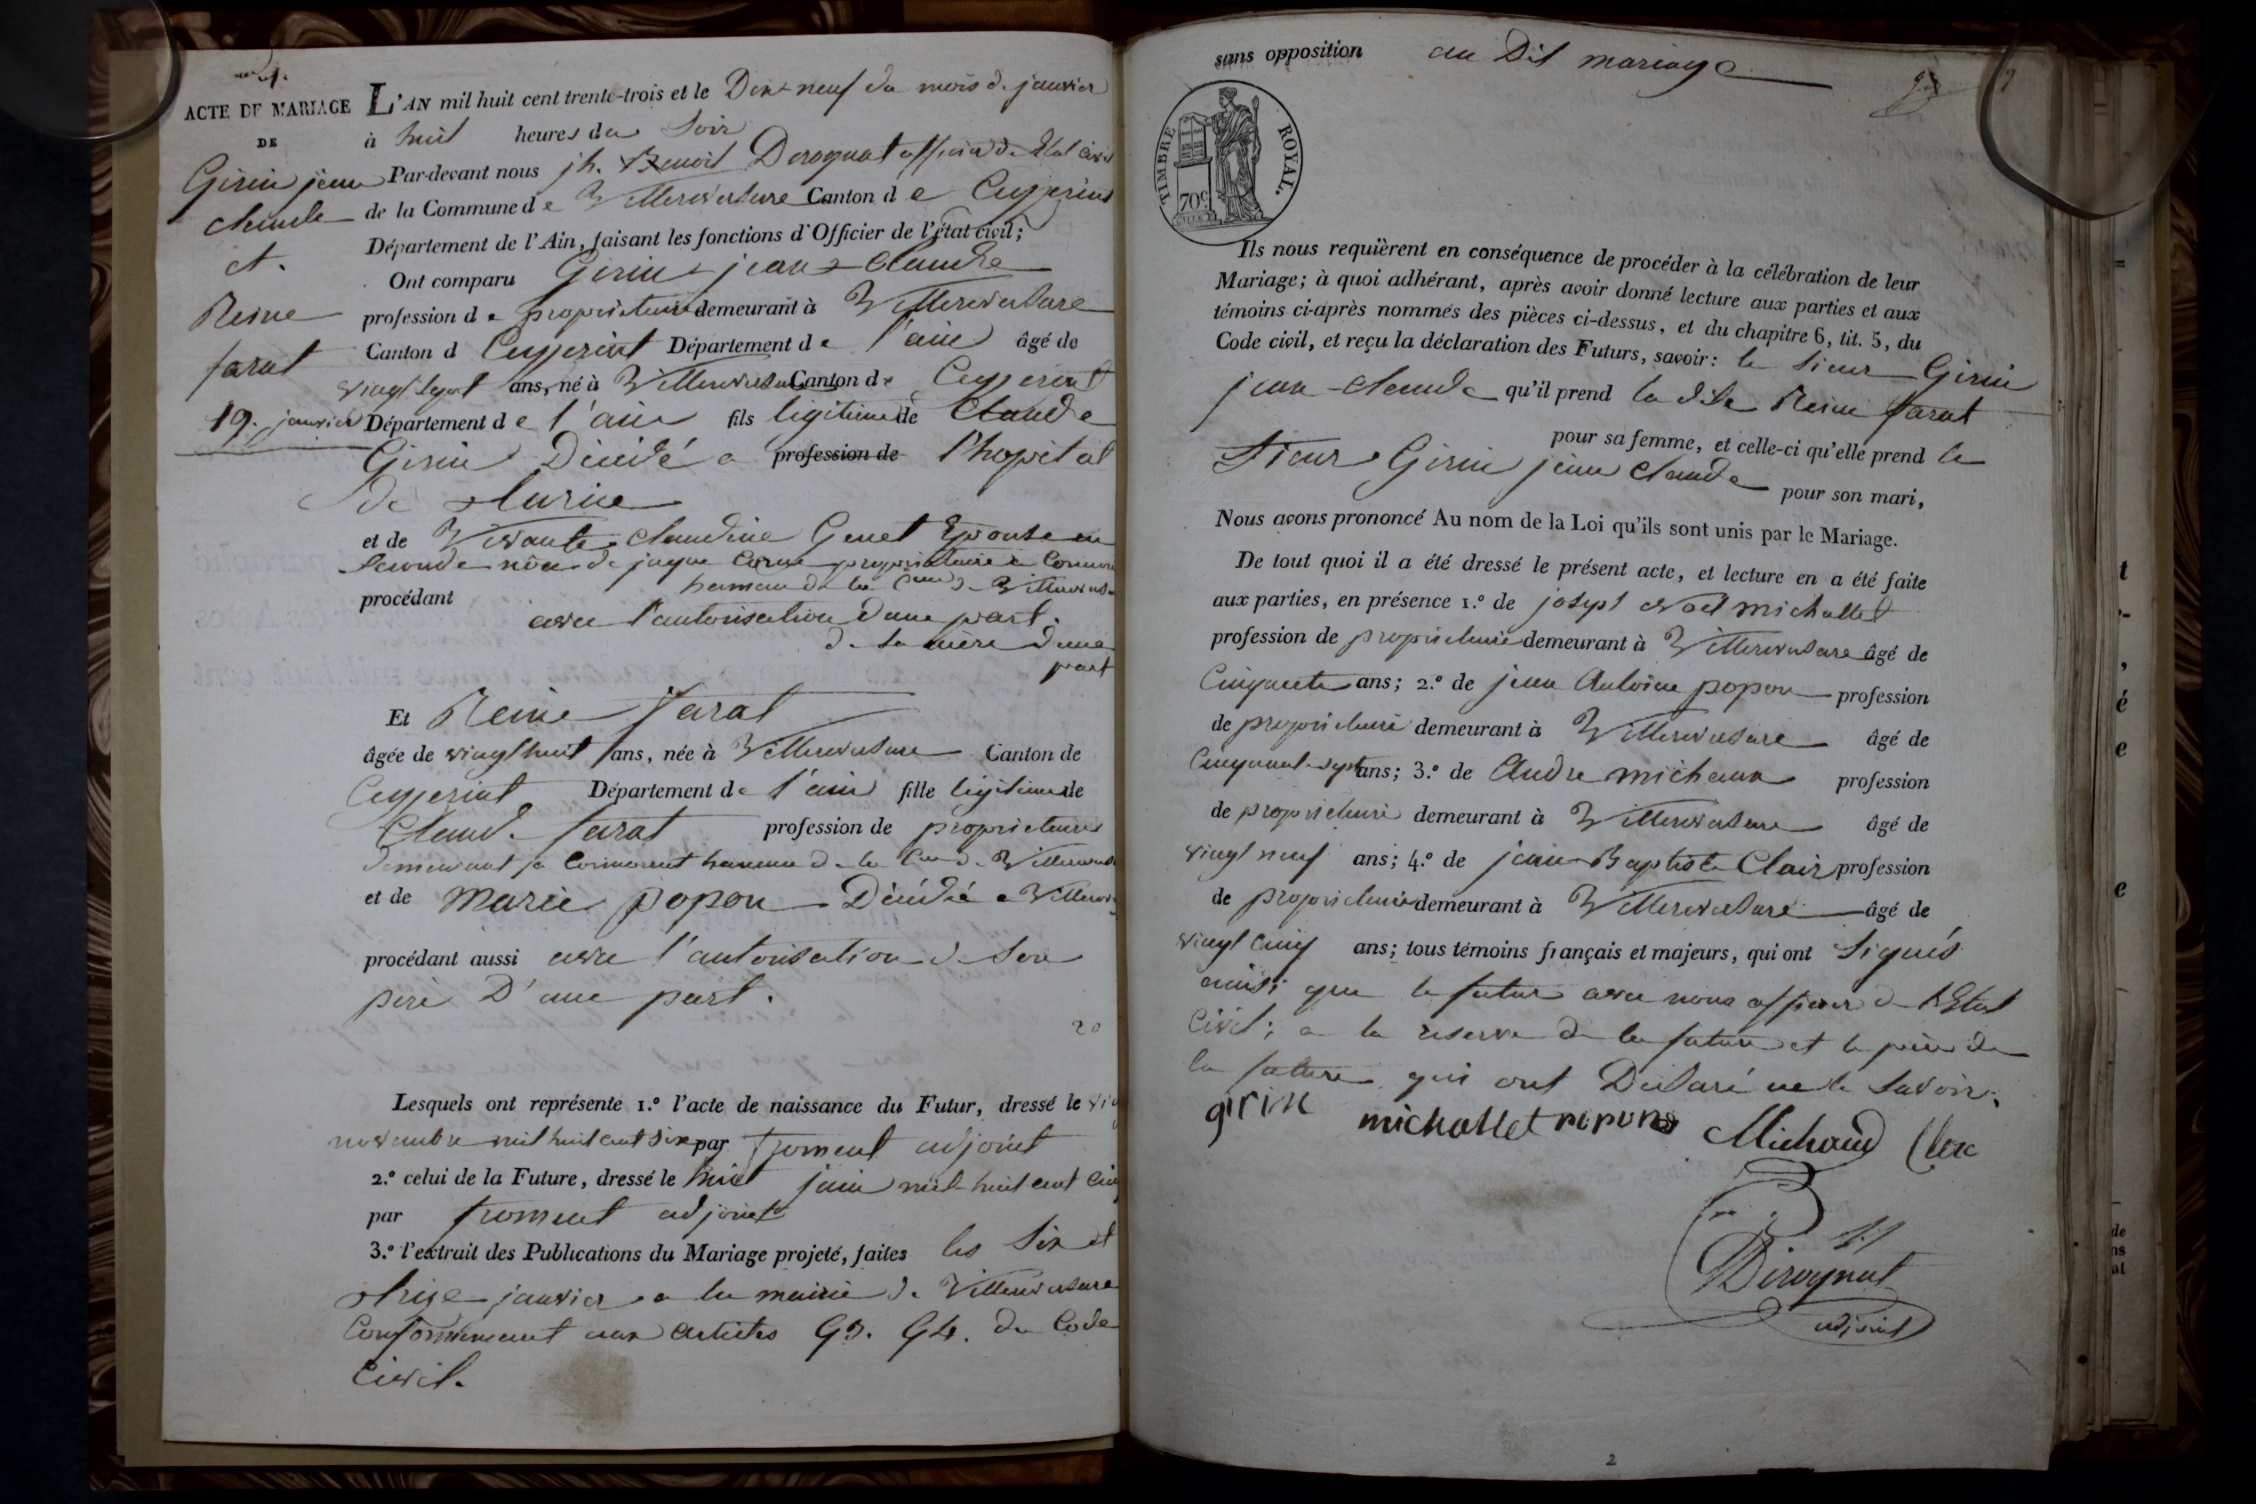 ACTE DE MARIAGE
DE
Girin jean
claude
et.
Reine
farat
19. janvier
L'AN mil huit cent trente-trois et le Dix neuf du mois de janvier
à huit heures du Soir
Par-devant nous jh. Benoit Derognat officier de Etat civil
de la Commune de Villereversure Canton de Ceyzeriat
Département de l'Ain, faisant les fonctions d'Officier de l'état civil;
Ont comparu Girin jean claude
profession de proprietaire demeurant à Villereversure
Canton d Ceyzeriat Département de l'ain âgé de
vingt sept ans, né à Villereversure Canton de Ceyzeriat
Département de l'ain fils légitime de Claude
Girin Décédé a profession de l'hopital
de
et de Vivante Claudine Genet Epouse en
Seconde nôce de jaque Corne proprietaire a
hameau de la Cne de Villereversure
procédant avec l'autorisation d'une part.
de sa mère d'une
part
Et Reine farat
âgée de vingt huit ans, née à Villereversure Canton de
Ceyzeriat Département de l'ain fille légitime de
Claude farat profession de proprietaire
demeurant a hameau de la Cne de Villereversure
et de Marie popon Décédée a
procédant aussi avec l'autorisation de Son
père D'une part.
20
Lesquels ont représenté 1.º l'acte de naissance du Futur, dressé le
novembre mil huit cent Six par froment adjoint
2.º celui de la Future, dressé le huit juin mil huit cent cinq
par froment adjoint
3.º l'extrait des Publications du Mariage projeté, faites les Six et
treize janvier a la mairie de Villereversure
Conformement aux articles 63. 64. du Code
Civil.
sans opposition au Dit mariage
TIMBRE ROYAL.
70c.
Ils nous requièrent en conséquence de procéder à la célébration de leur
Mariage; à quoi adhérant, après avoir donné lecture aux parties et aux
témoins ci-après nommés des pièces ci-dessus, et du chapitre 6, tit. 5, du
Code civil, et reçu la déclaration des Futurs, savoir: le Sieur Girin
jean claude qu'il prend la dite Reine farat
pour sa femme, et celle-ci qu'elle prend le
Sieur Girin jean Claude pour son mari,
Nous avons prononcé Au nom de la Loi qu'ils sont unis par le Mariage.
De tout quoi il a été dressé le présent acte, et lecture en a été faite
aux parties, en présence 1.º de joseph noël michallet
profession de proprietaire demeurant à Villereversure âgé de
Cinquante ans; 2.º de jean Antoine popon profession
de proprietaire demeurant à Villereversure âgé de
Cinquante sept ans; 3.º de Andre michaux profession
de proprietaire demeurant à Villereversure âgé de
vingt neuf ans; 4.º de jean Baptiste Clair profession
de proprietaire demeurant à Villereversure âgé de
vingt cinq ans; tous témoins français et majeurs, qui ont Signés
ainsi que le futur avec nous officier de l'Etat
Civil; a la reserve de la future et le père de
la future qui ont Déclaré ne le Savoir.
girin michallet popons Michaud Clerc
Derognat
adjoint
2